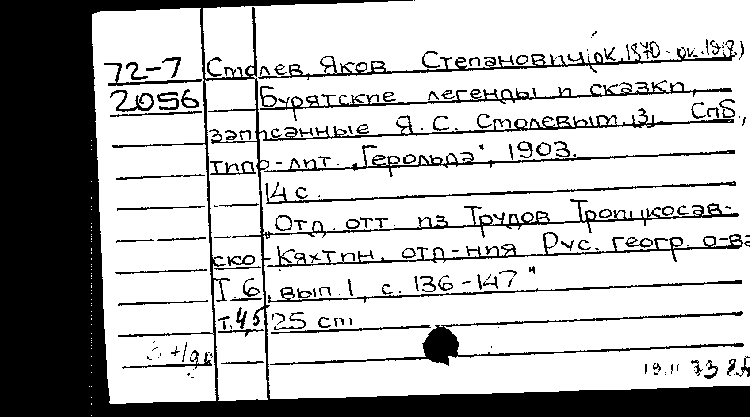 72-7 Столев, Яков Степанович (ок. 1870 - ок. 1918)
2056 Бурятские легенды и сказки,
записанные Я. С. Столевым. Спб.,
типо-лит. „Герольда", 1903.
14 с.
„Отд. отт. из Трудов Троицкосав-
ско-Кяхтин. отд-ния Рус. геогр. о-ва
Т. 6, вып. 1, с. 136-147"
т. 4,5 25 cm
19.11 73